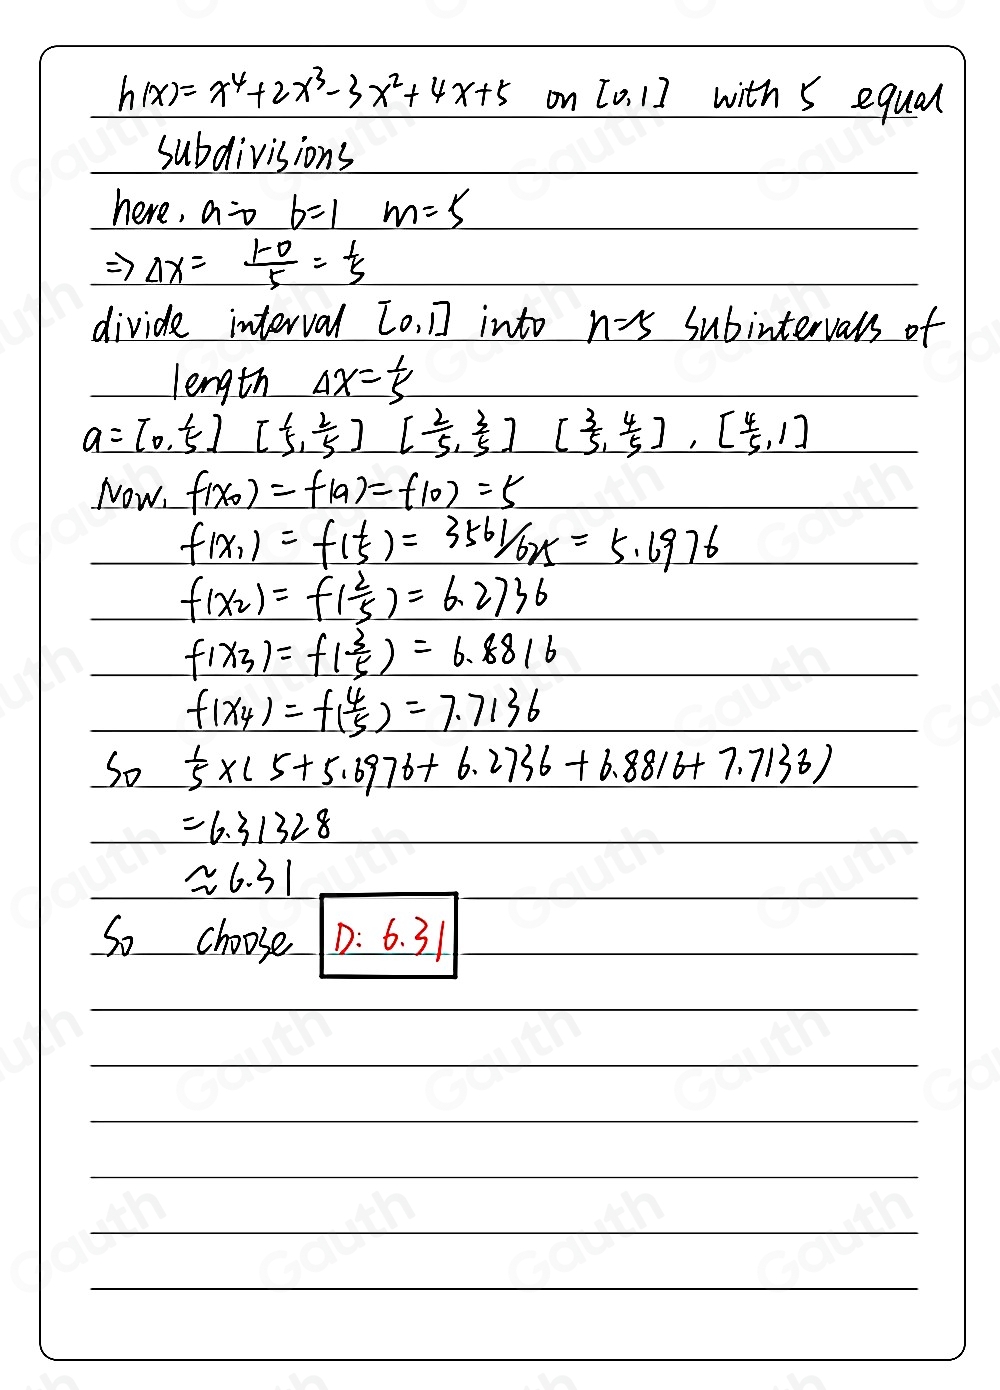 h(x)= x⁴+2x³-3x²+4x+5 on [0,1] with 5 equal
subdivisions
here, a=0 b=1 m=5
⇒ Δx= (1-0)/5 = 1/5
divide interval [0,1] into n=5 subintervals of
length Δx=1/5
a=[0,1/5] [1/5,2/5] [2/5,3/5] [3/5,4/5], [4/5,1]
Now, f(x₀)=f(a)=f(0)=5
f(x₁)=f(1/5)= 3561/625= 5.6976
f(x₂)=f(2/5)=6.2736
f(x₃)=f(3/5)=6.8816
f(x₄)=f(4/5)=7.7136
So 1/5×(5+5.6976+6.2736+6.8816+7.7136)
=6.31328
≈6.31
So choose D: 6.31
Gauth